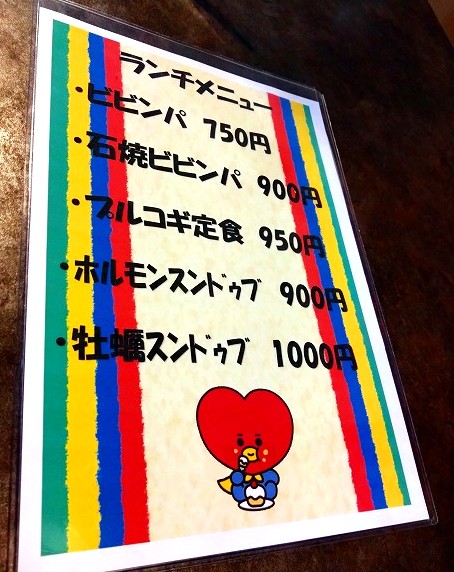 ランチメニュー
・ビビンパ 750円
・石焼ビビンパ 900円
・プルコギ定食 950円
・ホルモンスンドゥブ 900円
・牡蠣スンドゥブ 1000円